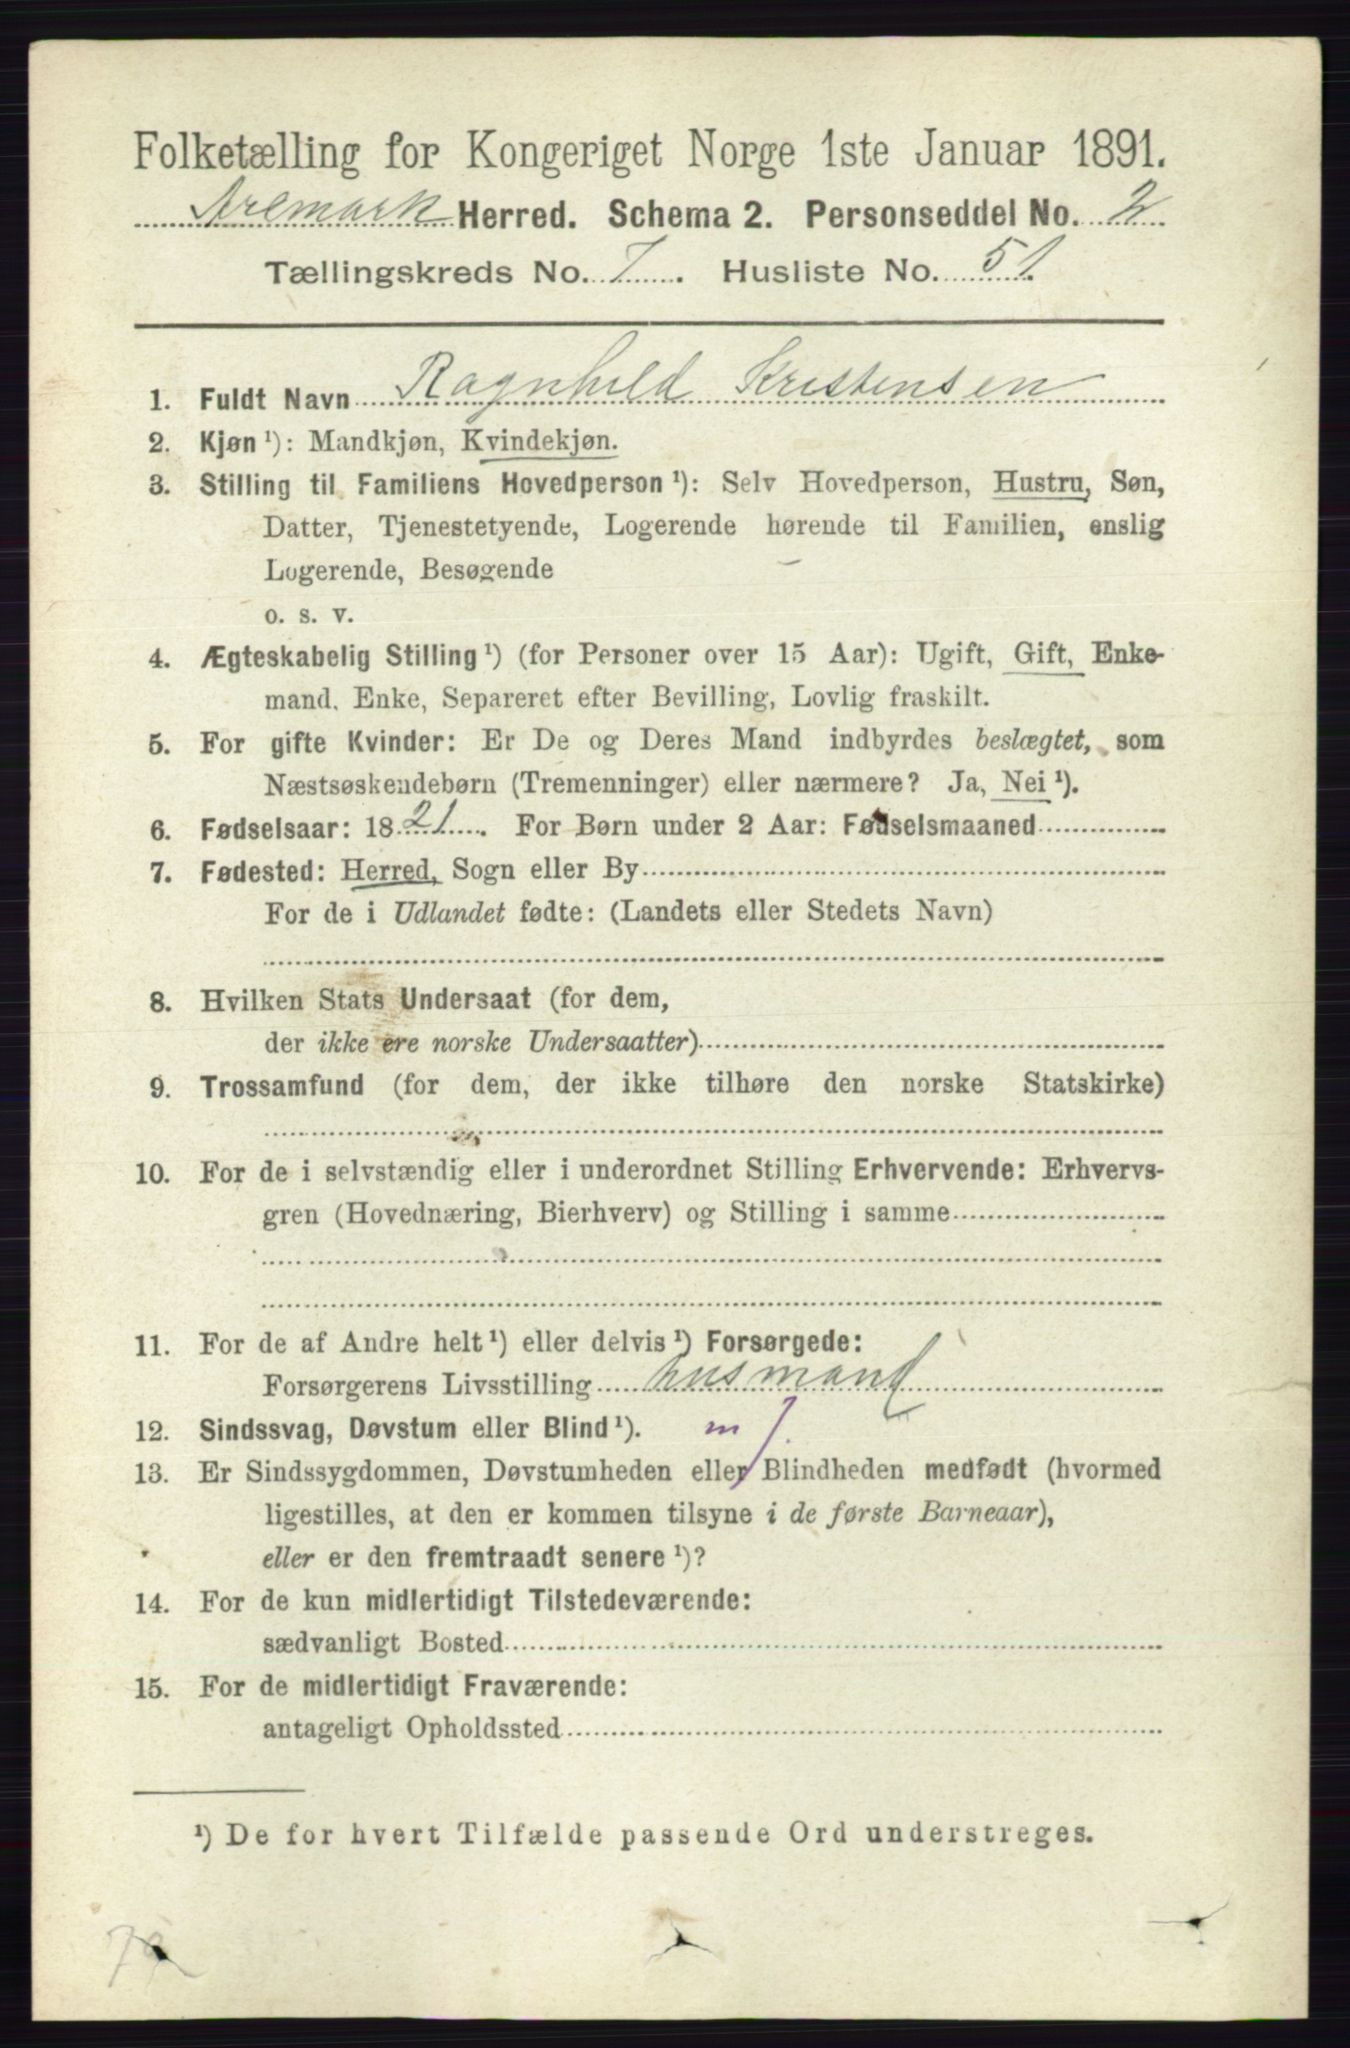 Folketælling for Kongeriget Norge 1ste Januar 1891.
Aremark Herred. Schema 2. Personseddel No. 2
Tællingskreds No. 7. Husliste No. 51.
1. Fuldt Navn Ragnhild Kristensen
2. Kjøn¹): Mandkjøn, Kvindekjøn.
3. Stilling til Familiens Hovedperson¹): Selv Hovedperson, Hustru, Søn,
Datter, Tjenestetyende, Logerende hørende til Familien, enslig
Logerende, Besøgende
o. s. v.
4. Ægteskabelig Stilling¹) (for Personer over 15 Aar): Ugift, Gift, Enke-
mand, Enke, Separeret efter Bevilling, Lovlig fraskilt.
5. For gifte Kvinder: Er De og Deres Mand indbyrdes beslægtet, som
Næstsøskendebørn (Tremenninger) eller nærmere? Ja, Nei¹).
6. Fødselsaar: 1821. For Børn under 2 Aar: Fødselsmaaned
7. Fødested: Herred, Sogn eller By
For de i Udlandet fødte: (Landets eller Stedets Navn)
8. Hvilken Stats Undersaat (for dem,
der ikke ere norske Undersaatter)
9. Trossamfund (for dem, der ikke tilhøre den norske Statskirke)
10. For de i selvstændig eller i underordnet Stilling Erhvervende: Erhvervs-
gren (Hovednæring, Bierhverv) og Stilling i samme
11. For de af Andre helt¹) eller delvis¹) Forsørgede:
Forsørgerens Livsstilling husmand
12. Sindssvag, Døvstum eller Blind¹).
13. Er Sindssygdommen, Døvstumheden eller Blindheden medfødt (hvormed
ligestilles, at den er kommen tilsyne i de første Barneaar),
eller er den fremtraadt senere¹)?
14. For de kun midlertidigt Tilstedeværende:
sædvanligt Bosted
15. For de midlertidigt Fraværende:
antageligt Opholdssted
¹) De for hvert Tilfælde passende Ord understreges.